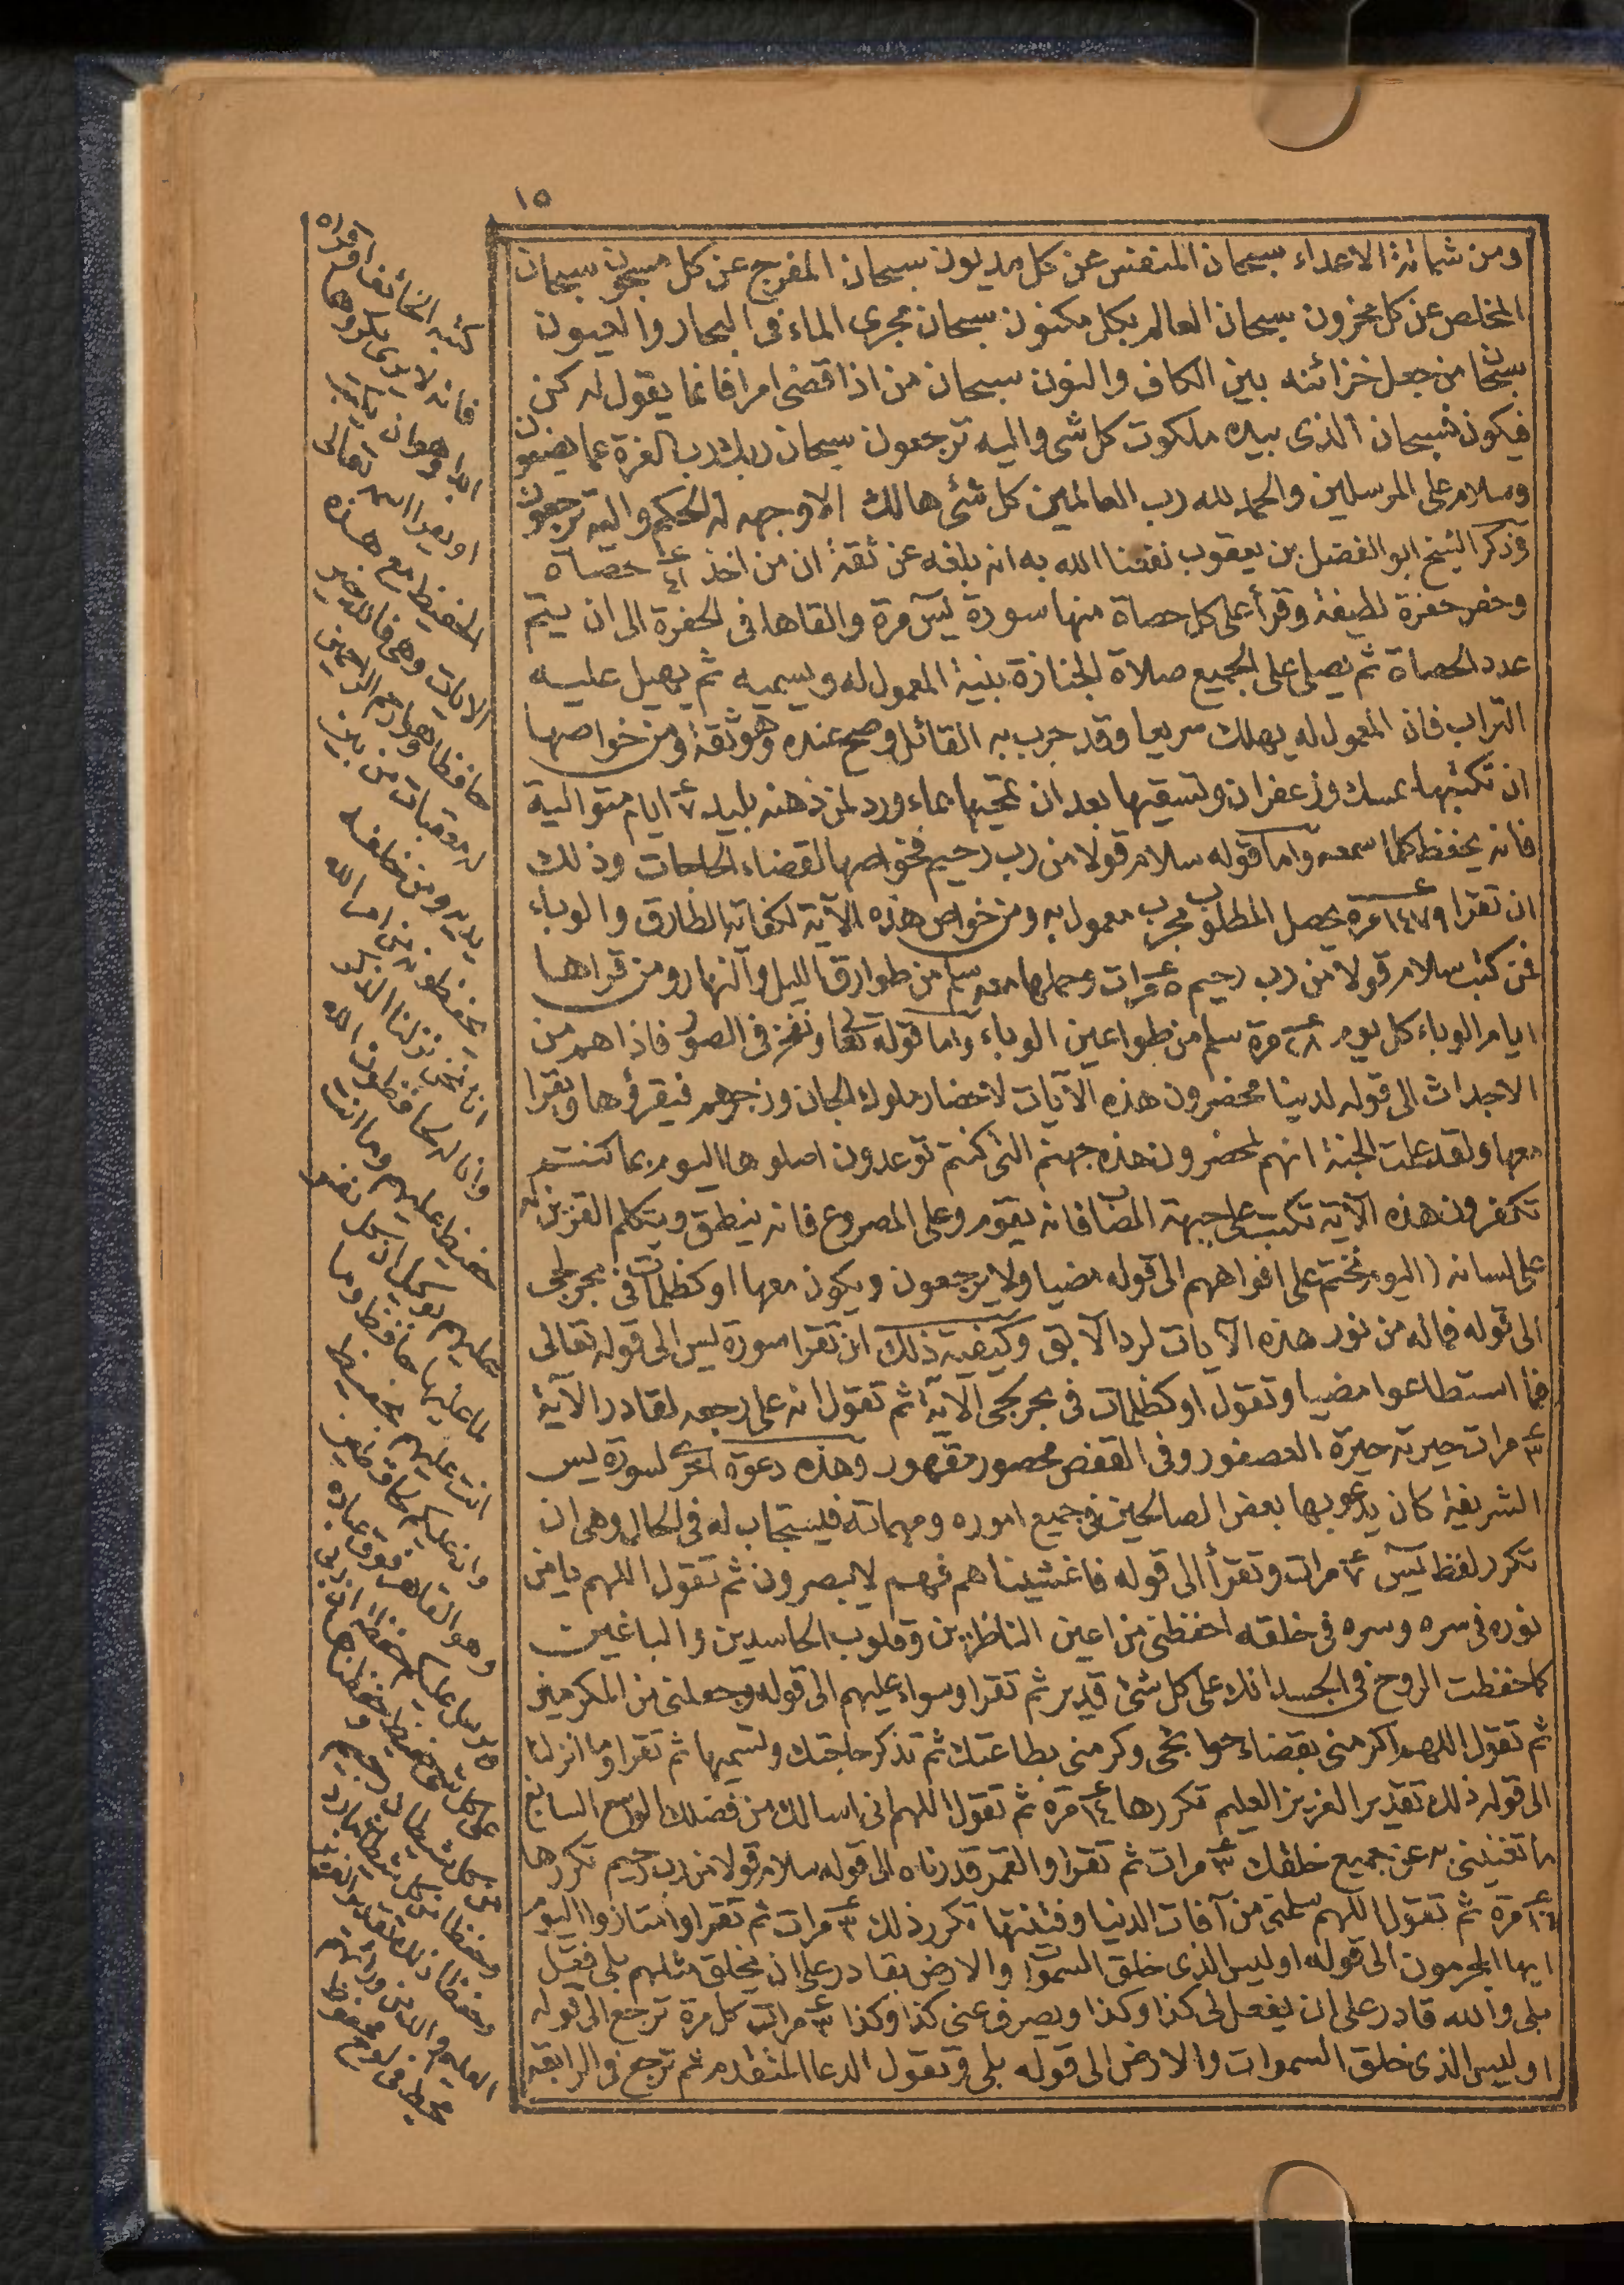 ١٥
ومن شماتة الاعداء سبحان المنفس عن كل مديون سبحان المفرج عن كل مسجون سبحان
المخلص عن كل مخزون سبحان العالم بكل مكنون سبحان مجرى الماء فى البحار والعيون
سبحان من جعل خزائنه بين الكاف والنون سبحان من اذا قضى امرا فانما يقول له كن
فيكون فسبحان الذى بيده ملكوت كل شى واليه ترجعون سبحان ربك رب العزة عما يصفون
وسلام على المرسلين والحمد لله رب العالمين كل شئ هالك الا وجهه له الحكم واليه ترجعون
وذكر الشيخ ابو الفضل بن يعقوب نفعنا الله به انه بلغه عن ثقة ان من اخذ ٤١ حصاة
وحفر حفرة لطيفة وقرأ على كل حصاة منها سورة يس مرة والقاها فى الحفرة الى ان يتم
عدد الحصاة ثم يصلى على الجميع صلاة الجنازة بنية المعمول له ويسميه ثم يهيل عليه
التراب فان المعمول له يهلك سريعا وقد جرب به القائل وصح عنده وهو ثقة ومن خواصها
ان تكتبها بمسك وزعفران وتسقيها بعد ان تمحيها بماء ورد لمن ذهنه بليد ٧ ايام متوالية
فانه يحفظ كلما سمعه واما قوله سلام قولا من رب رحيم فخواصها لقضاء الحاجات وذلك
ان تقرا ١٤٧٩ مرة يحصل المطلوب مجرب معمول به ومن خواص هذه الآية لكفاية الطارق والوباء
فمن كتب سلام قولا من رب رحيم ٥ مرات وحملها معه سلم من طوارق الليل والنهار ومن قراها
ايام الوباء كل يوم ٢٨ مرة سلم من طواعين الوباء واما قوله تعالى ونفخ فى الصور فاذا هم من
الاجداث الى قوله لدينا محضرون هذه الآيات لاحضار ملوك الجان وزجرهم فيقرؤها ويقرا
معها ولقد علمت الجنة انهم لمحضرون هذه جهنم التى كنتم توعدون اصلوها اليوم بما كنتم
تكفرون هذه الآية تكتب على جبهة المصاب فانه يقوم وعلى المصروع فانه ينطق ويتكلم القرين
على لسانه (اليوم نختم على افواههم الى قوله مضيا ولا يرجعون ويكون معها او كظلمات فى بحر لجى
الى قوله فماله من نور هذه الآيات لرد الآبق وكيفية ذلك ان تقرا سورة يس الى قوله تعالى
فما استطاعوا مضيا وتقول او كظلمات فى بحر لجى الآية ثم تقول انه على رجعه لقادر الآية
٣ مرات حيرته حيرة العصفور وفى القفص محصور مقهور وهذه دعوة اخرى لسورة يس
الشريفة كان يدعو بها بعض الصالحين فى جميع اموره ومهماته فيستجاب له فى الحال وهى ان
تكرر لفظ يس ٧ مرات وتقرأ الى قوله فاغشيناهم فهم لا يبصرون ثم تقول اللهم يا من
نوره فى سره وسره فى خلقه احفظنى من اعين الناظرين وقلوب الحاسدين والباغين
كما حفظت الروح فى الجسد انك على كل شئ قدير ثم تقرا وسواء عليهم الى قوله وجعلنى من المكرمين
ثم تقول اللهم اكرمنى بقضاء حوائجى وكرمنى بطاعتك ثم تذكر حاجتك وتسميها ثم تقرا وما انزلنا
الى قوله ذلك تقدير العزيز العليم تكررها ١٤ مرة ثم تقول اللهم انى اسالك من فضلك الواسع السابغ
ما تغنينى به عن جميع خلقك ٣ مرات ثم تقرا والقمر قدرناه الى قوله سلام قولا من رب رحيم تكررها
١٦ مرة ثم تقول اللهم سلمنى من آفات الدنيا وفتنتها تكرر ذلك ٣ مرات ثم تقرا وامتازوا اليوم
ايها المجرمون الى قوله اوليس الذى خلق السموات والارض بقادر على ان يخلق مثلهم بلى فقل
بلى والله قادر على ان يفعل لى كذا وكذا ويصرف عنى كذا وكذا ٣ مرات كل مرة ترجع الى قوله
اوليس الذى خلق السموات والارض الى قوله بلى وتقول الدعا المتقدم ثم ترجع فى الرابعة
كتبه الخائف او قراه
فانه لا يرى مكروها
ابدا وهو ان يكتب
او يقرا اسمه تعالى
الحفيظ مع هذه
الآيات وهى فالله خير
حافظا وهو ارحم الراحمين
له معقبات من بين
يديه ومن خلفه
يحفظونه من امر الله
انا نحن نزلنا الذكر
وانا له لحافظون الله
حفيظ عليهم وما انت
عليهم بوكيل ان كل نفس
لما عليها حافظ وما
انت عليهم بحفيظ
وان عليكم لحافظين
وهو القاهر فوق عباده
ويرسل عليكم حفظة ان ربى
على كل شئ حفيظ وحفظناها
من كل شيطان رجيم و
وحفظا من كل شيطان مارد
وحفظا ذلك تقدير العزيز
العليم والله من ورائهم
محيط فى لوح محفوظ